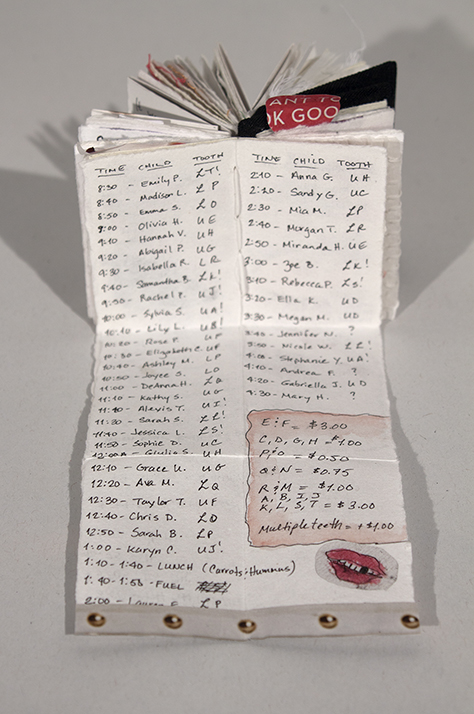 ANT TO
OK GOO
TIME CHILD TOOTH
8:30 - Emily P. LT!
8:40 - Madison L. LP
8:50 - Emma S. LO
9:00 - Olivia H. UE
9:10 - Hannah V. UH
9:20 - Abigail P. UG
9:30 - Isabella R. LR
9:40 - Samantha B. LK!
9:50 - Rachel P. UJ!
10:00 - Sylvia S. UA!
10:10 - Lily L. UB!
10:20 - Rose P. UF
10:30 - Elizabeth C. UF
10:40 - Ashley M. LP
10:50 - Joyce S. LO
11:00 - DeAnna H. LQ
11:10 - Kathy S. UG
11:20 - Alexis T. UI!
11:30 - Sarah S. LL!
11:40 - Jessica L. LS!
11:50 - Sophie D. UC
12:00 - Giulia S. UH
12:10 - Grace U. UG
12:20 - Ava M. LQ
12:30 - Taylor T. UF
12:40 - Chris D. LQ
12:50 - Sarah B. LP
1:00 - Karyn C. UJ!
1:10 - 1:40 - LUNCH (Carrots & Hummus)
1:40 - 1:55 - FUEL
2:00 - LP
TIME CHILD TOOTH
2:10 - Anna G. UH
2:20 - Sandy G. UC
2:30 - Mia M. LP
2:40 - Morgan T. LR
2:50 - Miranda H. UE
3:00 - Zoe B. LK!
3:10 - Rebecca P. LS!
3:20 - Ella K. UD
3:30 - Megan M. UD
3:40 - Jennifer N. ?
3:50 - Nicole W. LL!
4:00 - Stephanie Y. UA!
4:10 - Andrea F. ?
4:20 - Gabriella J. UD
4:30 - Mary H. ?
E & F = $3.00
C, D, G, H = $1.00
P & O = $0.50
Q & N = $0.75
R & M = $1.00
A, B, I, J
K, L, S, T = $3.00
Multiple teeth = +$1.00